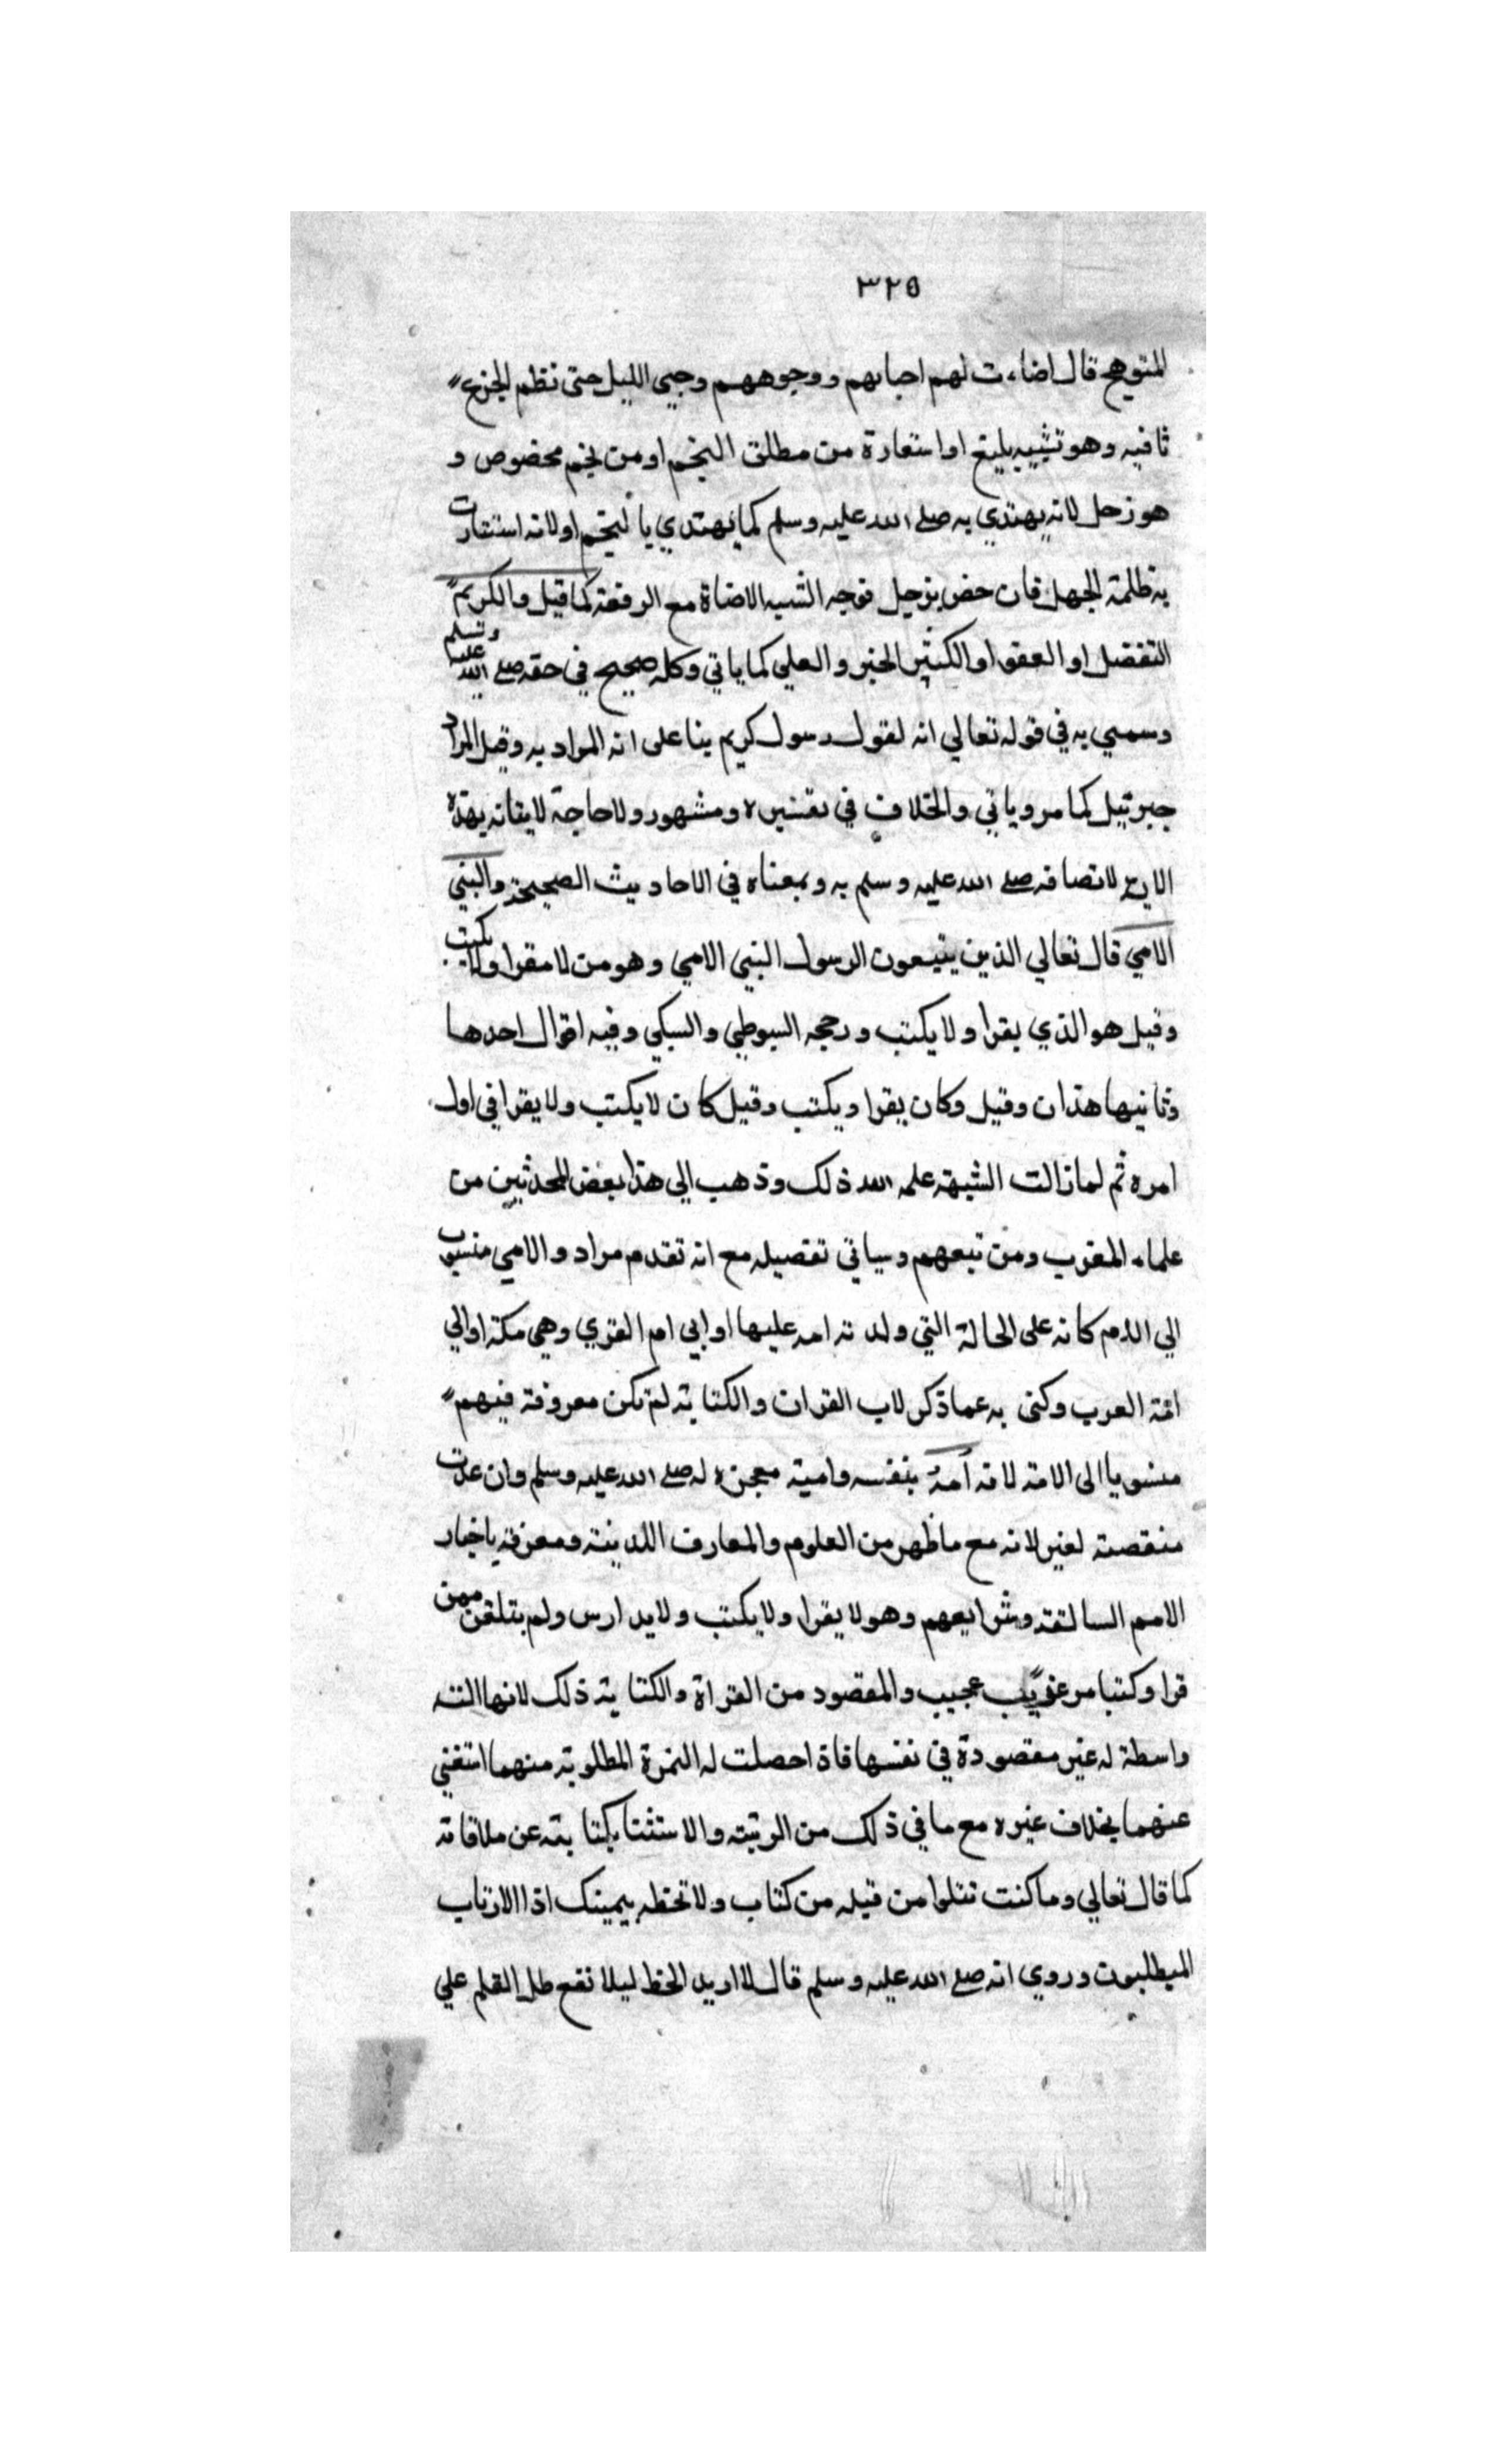 ٣٢٥
المتوهج قال اضاءت لهم احبابهم ووجوههم وجيى الليل حتى نظم الجزع
ثاقبه وهو تشبيه بليغ او استعارة من مطلق النجم او من نجم مخصوص و
هو زحل لانه يهتدي به صلى الله عليه وسلم كما يهتدي بالنجم او لانه استنارت
به ظلمة الجهل فان خص بزحل فوجه الشبه الاضاة مع الرفعة كما قيل والكريم
التفضل او العفو او الكثير الخير والعلي كما ياتي وكله صحيح في حقه صلى الله عليه وسلم
وسمي به في قوله تعالي انه لقول رسول كريم بنا على انه المراد به وقيل المراد
جبرئيل كما مر وياتي والخلاف في تفسيره ومشهور ولا حاجة لايقانه بهذه
الاية لاتصافه صلى الله عليه وسلم به وبمعناه في الاحاديث الصحيحة والنبي
الامي قال تعالي الذين يتبعون الرسول النبي الامي وهو من لا يقرا ولا يكتب
وقيل هو الذي يقرا ولا يكتب ورجحه السيوطي والسبكي وفيه اقوال احدها
وثانيها هذان وقيل وكان يقرا ويكتب وقيل كان لا يكتب ولا يقرا في اول
امره ثم لما زالت الشبهة علمه الله ذلك وذهب الي هذا بعض المحدثين من
علماء المغرب ومن تبعهم وسياتي تفصيله مع انه تقدم مراد والامي منسوب
الي الام كانه على الحالة التي ولدته امه عليها او الي ام القري وهي مكة او الي
امة العرب وكنى به عما ذكر لاب القران والكتابة لم تكن معروفة فيهم
منسوبا الى الامة لانه أمة بنفسه واميته معجزه له صلى الله عليه وسلم وان عدت
منقصته لغير لانه مع ما ظهر من العلوم والمعارف اللدينة ومعرفة باخبار
الامم السالفة وشرايعهم وهو لا يقرا ولا يكتب ولا يدارس ولم يتلقن ممن
قرا وكتبا مر غريب عجيب والمقصود من القراة والكتابة ذلك لانها الته
واسطة له غير مقصودة في نفسها فاذا حصلت له الثمرة المطلوبة منهما استغني
عنهما بخلاف غيره مع ما في ذلك من الرتبة والاستثنا بكتابته عن ملاقاته
كما قال تعالي وما كنت تتلوا من قبله من كتاب ولا تخطه بيمينك اذا الارتاب
المبطلون وروي انه صلى الله عليه وسلم قال لا اريد الخط ليلا نقع ظل القلم علي